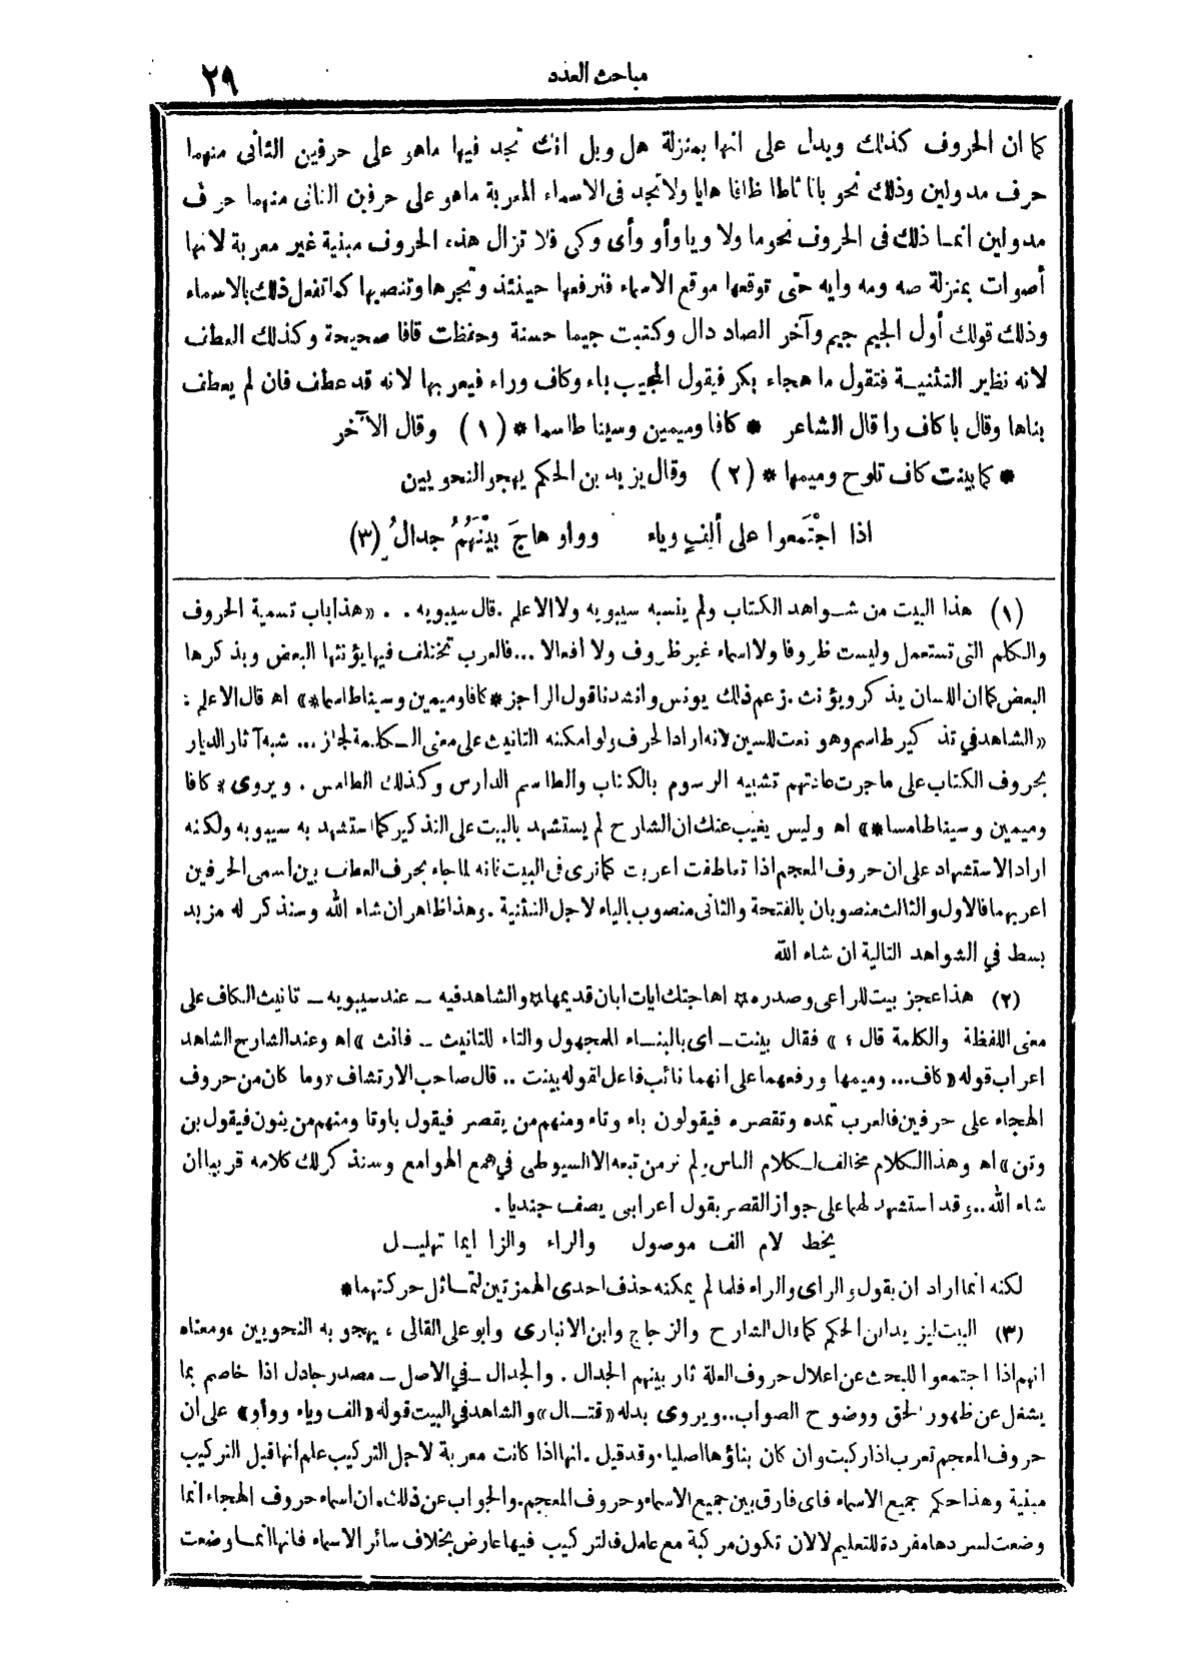 مباحث العدد
٢٩
كما ان الحروف كذلك ويدل على انها بمنزلة هل وبل انك تجد فيها ماهو على حرفين الثانى منهما
حرف مدولين وذلك نحو باتا ثاطا ظافا هايا ولاتجد فى الاسماء المعربة ماهو على حرفين الثانى منهما حرف
مدولين انمـا ذلك فى الحروف نحوما ولا ويا وأو وأى وكى فلا تزال هذه الحروف مبنية غير معربة لانها
أصوات بمنزلة صه ومه وايه حتى توقعها موقع الاسماء فترفعها حينئذ وتجرها وتنصبها كما تفعل ذلك بالاسماء
وذلك قولك أول الجيم جيم وآخر الصاد دال وكتبت جيما حسنة وحفظت قافا صحيحة وكذلك العطف
لانه نظير التثنيـة فتقول ما هجاء بكر فيقول المجيب باء وكاف وراء فيعربها لانه قد عطف فان لم يعطف
بناها وقال با كاف را قال الشاعر * كافا وميمين وسينا طاسما * (١) وقال الآخر
* كما بينت كاف تلوح وميمها * (٢) وقال يزيد بن الحكم يهجو النحويين
اذا اجْتَمعوا على ألِفٍ وياء وواو هاجَ بيْنَهُمُ جدالُ (٣)
(١) هذا البيت من شـواهد الكتاب ولم ينسبه سيبويه ولا الاعلم .قال سيبويه . . «هذا باب تسمية الحروف
والكلم التى تستعمل وليست ظروفا ولا اسماء غير ظروف ولا أفعالا ...فالعرب تختلف فيها يؤنثها البعض ويذكرها
البعض كما ان اللسان يذكر ويؤنث .زعم ذلك يونس وانشدنا قول الراجز * كافا وميمين وسينا طاسما*» اه قال الاعلم :
«الشاهد في تذكير طاسم وهو نعت للسين لانه اراد الحرف ولو امكنه التانيث على معنى الـكلمة لجاز ... شبه آثار الديار
بحروف الكتاب على ماجرت عادتهم تشبيه الرسوم بالكتاب والطاسم الدارس وكذلك الطامس . ويروى * كافا
وميمين وسينا طامسا*» اه وليس يغيب عنك ان الشارح لم يستشهد بالبيت على التذكير كما استشهد به سيبويه ولكنه
اراد الاستشهاد على ان حروف المعجم اذا تعاطفت اعربت كما ترى فى البيت فانه لما جاء بحرف العطف بين اسمى الحرفين
اعربهما فالاول والثالث منصوبان بالفتحة والثانى منصوب بالياء لاجل التثنية .وهذا ظاهر ان شاء الله وسنذكر له مزيد
بسط في الشواهد التالية ان شاء الله
(٢) هذا عجز بيت للراعى وصدره * اهاجتك ايات ابان قديمها * والشاهد فيه ـ عند سيبويه ـ تانيث الكاف على
معنى اللفظة والكلمة قال ؛ » فقال بينت ـ اى بالبنـاء للمجهول والتاء للتانيث ـ فانث » اه وعند الشارح الشاهد
اعراب قوله «كاف... وميمها ورفعهما على انهما نائب فاعل لقوله بينت .. قال صاحب الارتشاف «وما كان من حروف
الهجاء على حرفين فالعرب تمده وتقصره فيقولون باء وتاء ومنهم من يقصر فيقول باوتا ومنهم من ينون فيقول بن
وتن» اه وهذا الكلام مخالف لكلام الناس ولم نر من تبعه الا السيوطى في همع الهوامع وسنذكر لك كلامه قريبا ان
شاء الله .. وقد استشهد لهما على جواز القصر بقول أعرابى يصف جنديا .
يخط لام الف موصول والراء والزا ايما تهليـل
لكنه انما اراد ان يقول والراى والراء فلما لم يمكنه حذف احدى الهمزتين لتمـاثل حركتهما*
(٣) البيت ليزيد ابن الحكم كما قال الشارح والزجاج وابن الانبارى وابو على القالى ، يهجو به النحويين ، ومعناه
انهم اذا اجتمعوا للبحث عن اعلال حروف العلة ثار بينهم الجدال . والجدال ـ في الاصل ـ مصدر جادل اذا خاصم بما
يشغل عن ظهور الحق ووضوح الصواب..ويروى بدله «قتـال» والشاهد في البيت قوله «الف وياء وواو» على ان
حروف المعجم تعرب اذا ركبت وان كان بناؤها اصليا .وقد قيل .انها اذا كانت معربة لاجل التركيب علم أنها قبل التركيب
مبنية وهذا حكم جميع الاسماء فاى فارق بين جميع الاسماء وحروف المعجم.والجواب عن ذلك.ان اسماء حروف الهجاء انما
وضعت لسردها مفردة للتعليم لا لان تكون مركبة مع عامل فالتركيب فيها عارض بخلاف سائر الاسماء فانها انمـا وضعت